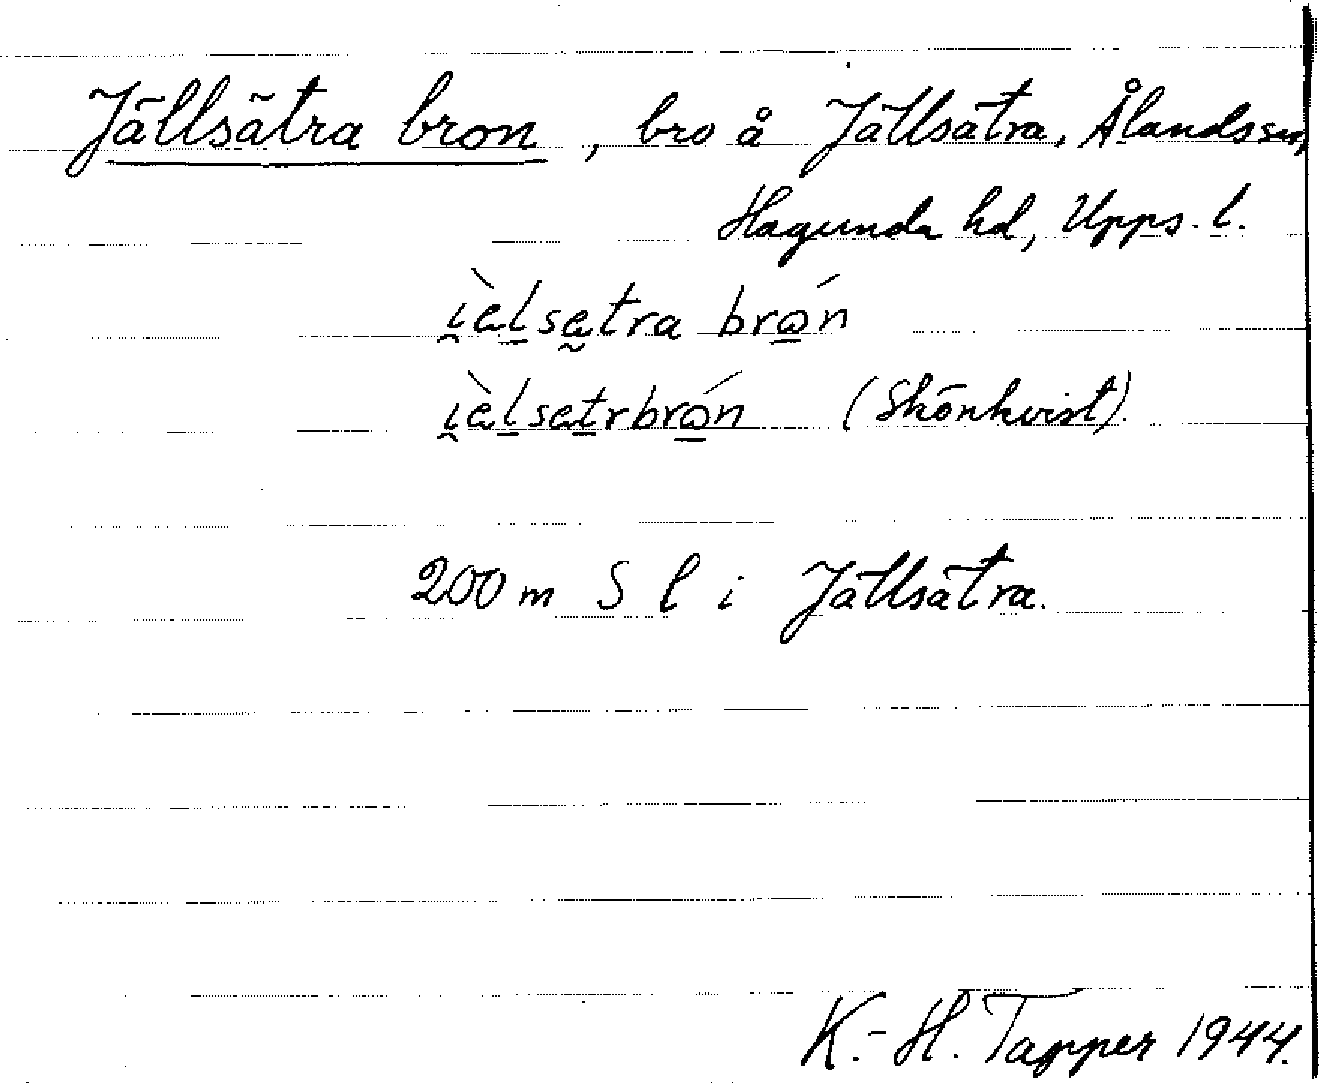 Jällsätra bron, bro å Jällsätra, Ålands sn,
Hagunda hd, Upps. l.
i̯èl̠sætra brǫ́n
i̯èl̠sæt̠rbrǫ́n (Skönkvist).
200 m S l i Jällsätra.
K.-H. Tapper 1944.